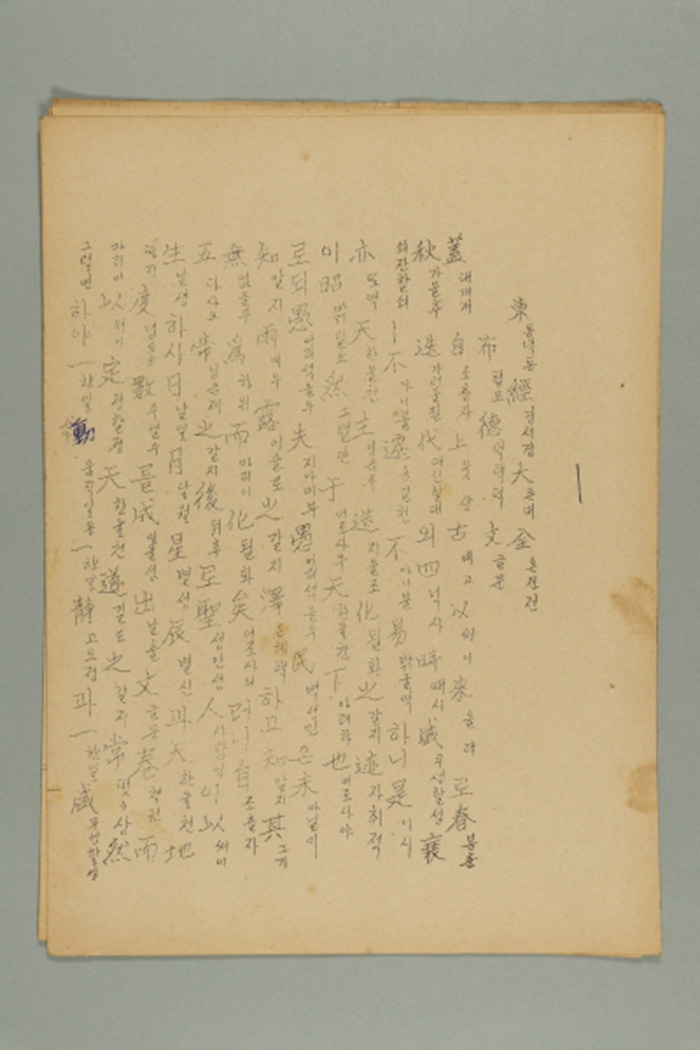 東 동녁동 經 경서경 大 큰대 全 온전전
布 펼포 德 덕덕덕 文 글문
蓋 대개개 自 조츨자 上 웃상 古 예고 以 써이 來 올래 로 春 봄춘
秋 가을추 迭 가러들질 代 대신할대 와 四 넉사 時 때시 盛 무성할성 衰
쇠잔할쇠 ㅣ 不 아니불 遷 옴길천 不 아니불 易 밧굴역 하니 是 이시
亦 또역 天 한울천 主 님금주 造 지을조 化 될화 之 갈지 迹 자최적
이 昭 밝을소 然 그럴연 于 어조사우 天 한울천 下 아래하 也 어조사야
로되 愚 어리석을우 夫 지아비부 愚 어리석을우 民 백성민 은 未 아닐미
知 알지 雨 비우 露 이슬로 之 갈지 澤 은혜택 하고 知 알지 其 그기
無 업슬무 爲 하위 而 마리이 化 될화 矣 어조사의 러니 自 조츨자
五 다사오 帝 님금제 之 갈지 後 뒤후 로 聖 성인성 人 사람인 이 以 써이
生 날생 하사 日 날일 月 달월 星 별성 辰 별신 과 天 한울천 地
따지 度 법도도 數 수설수 를 成 일울성 出 날출 文 글문 卷 책권 而
마리이 以 써이 定 정할정 天 한울천 道 길도 之 갈지 常 떳々상 然
그럴연 하야 一 한일 動 움직일동 一 한일 靜 고요정 과 一 한일 盛 무성할성